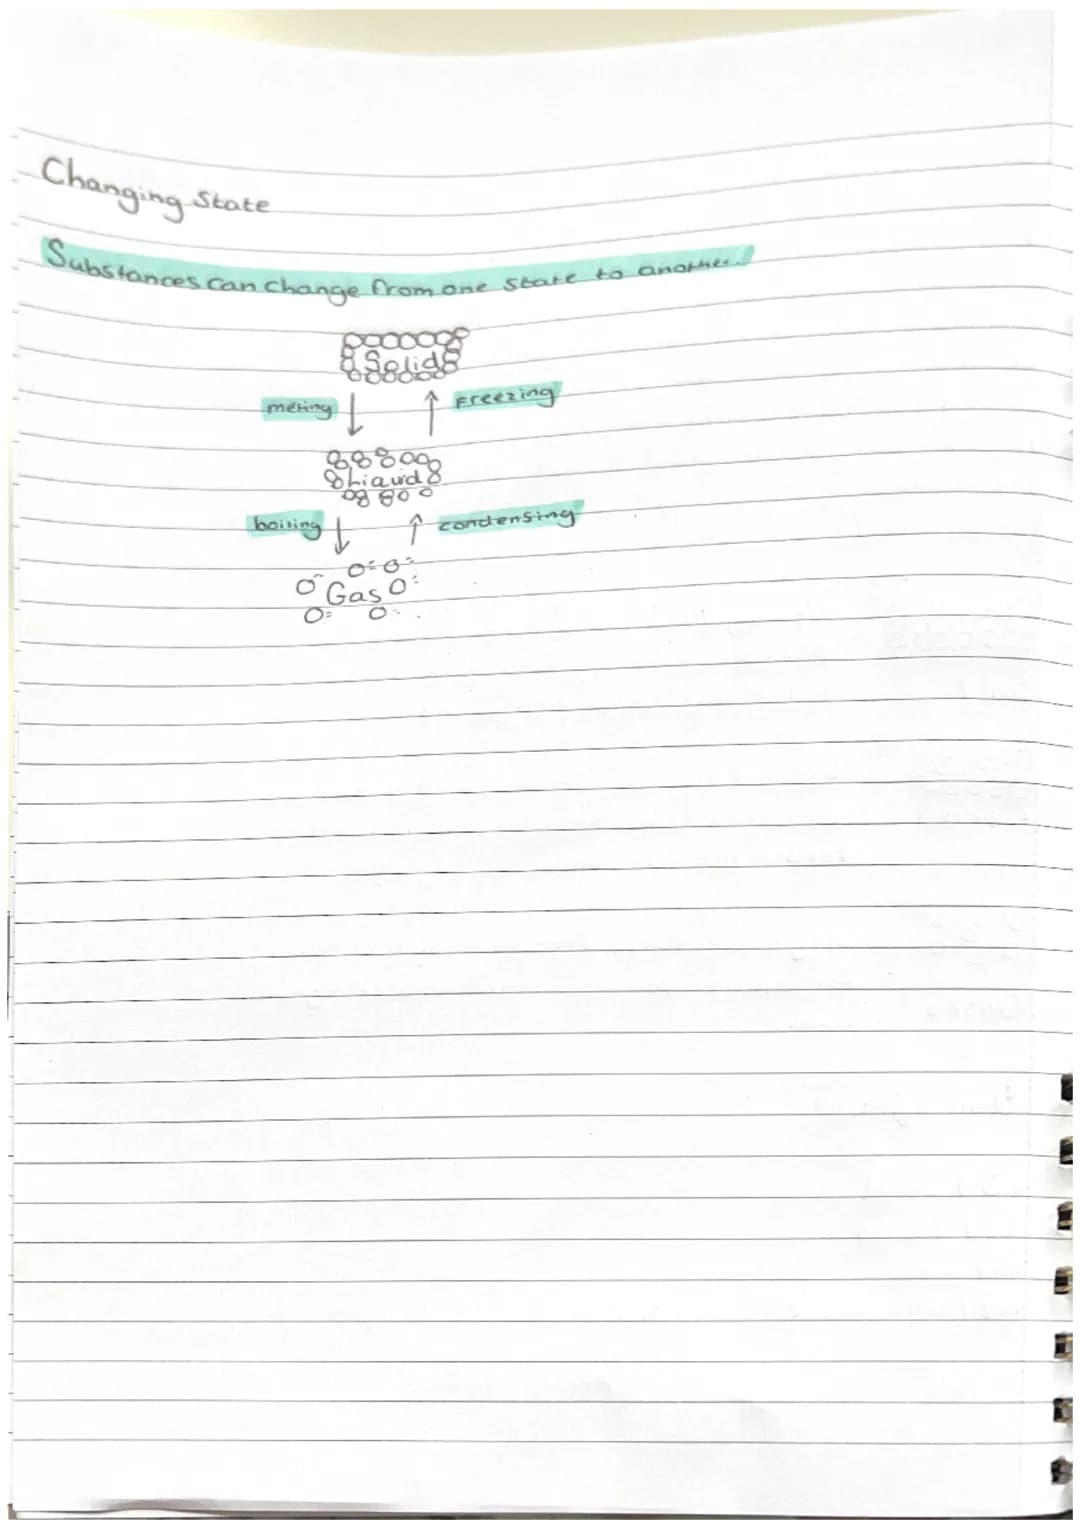 Changing State
Substances can change from one state to another.
Solid
melting
Freezing
Liquid
boiling
condensing
Gas